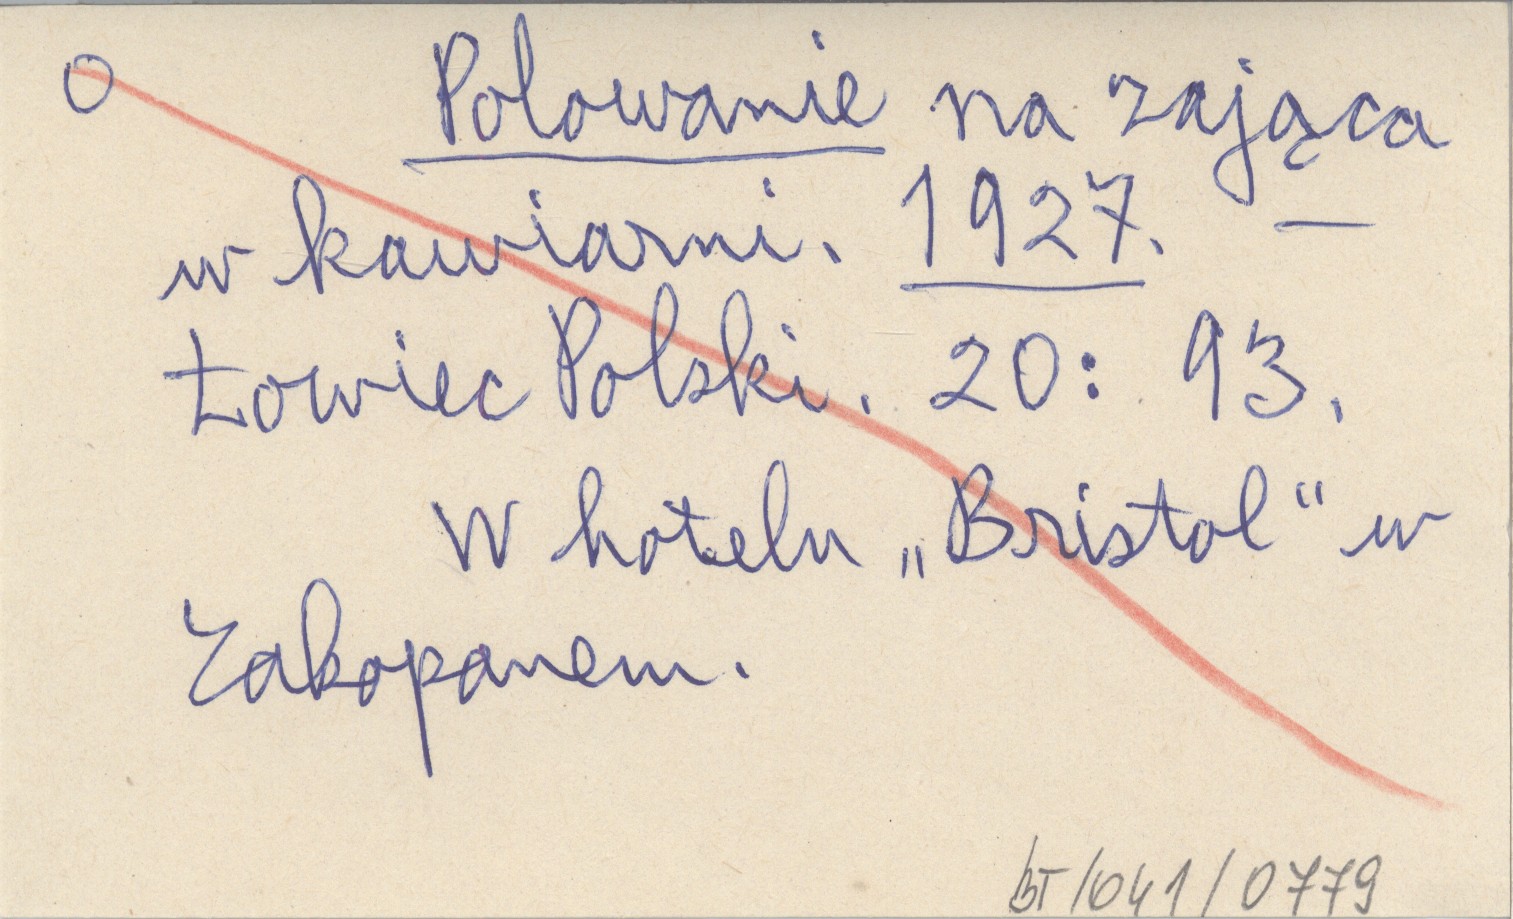 O Polowanie na zająca
w kawiarni. 1927. —
Łowiec Polski. 20: 93.
W hotelu „Bristol“ w
Zakopanem.
BT/041/0779